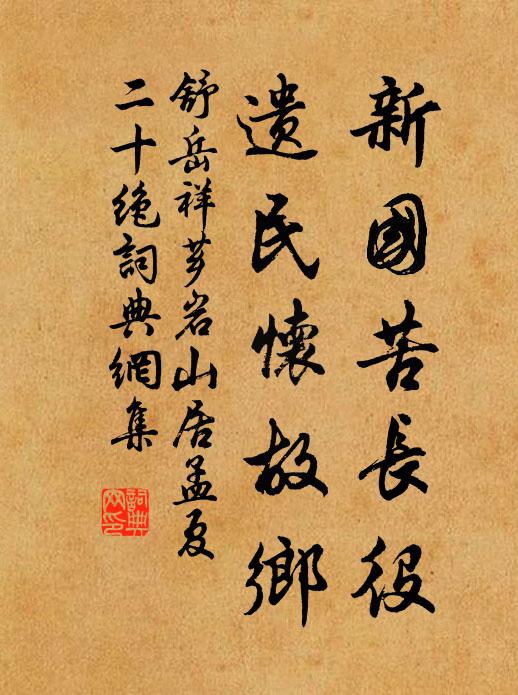 新國苦長役
遺民懷故鄉
舒岳祥芗岩山居孟夏
二十絶詞典網集
詞典网印